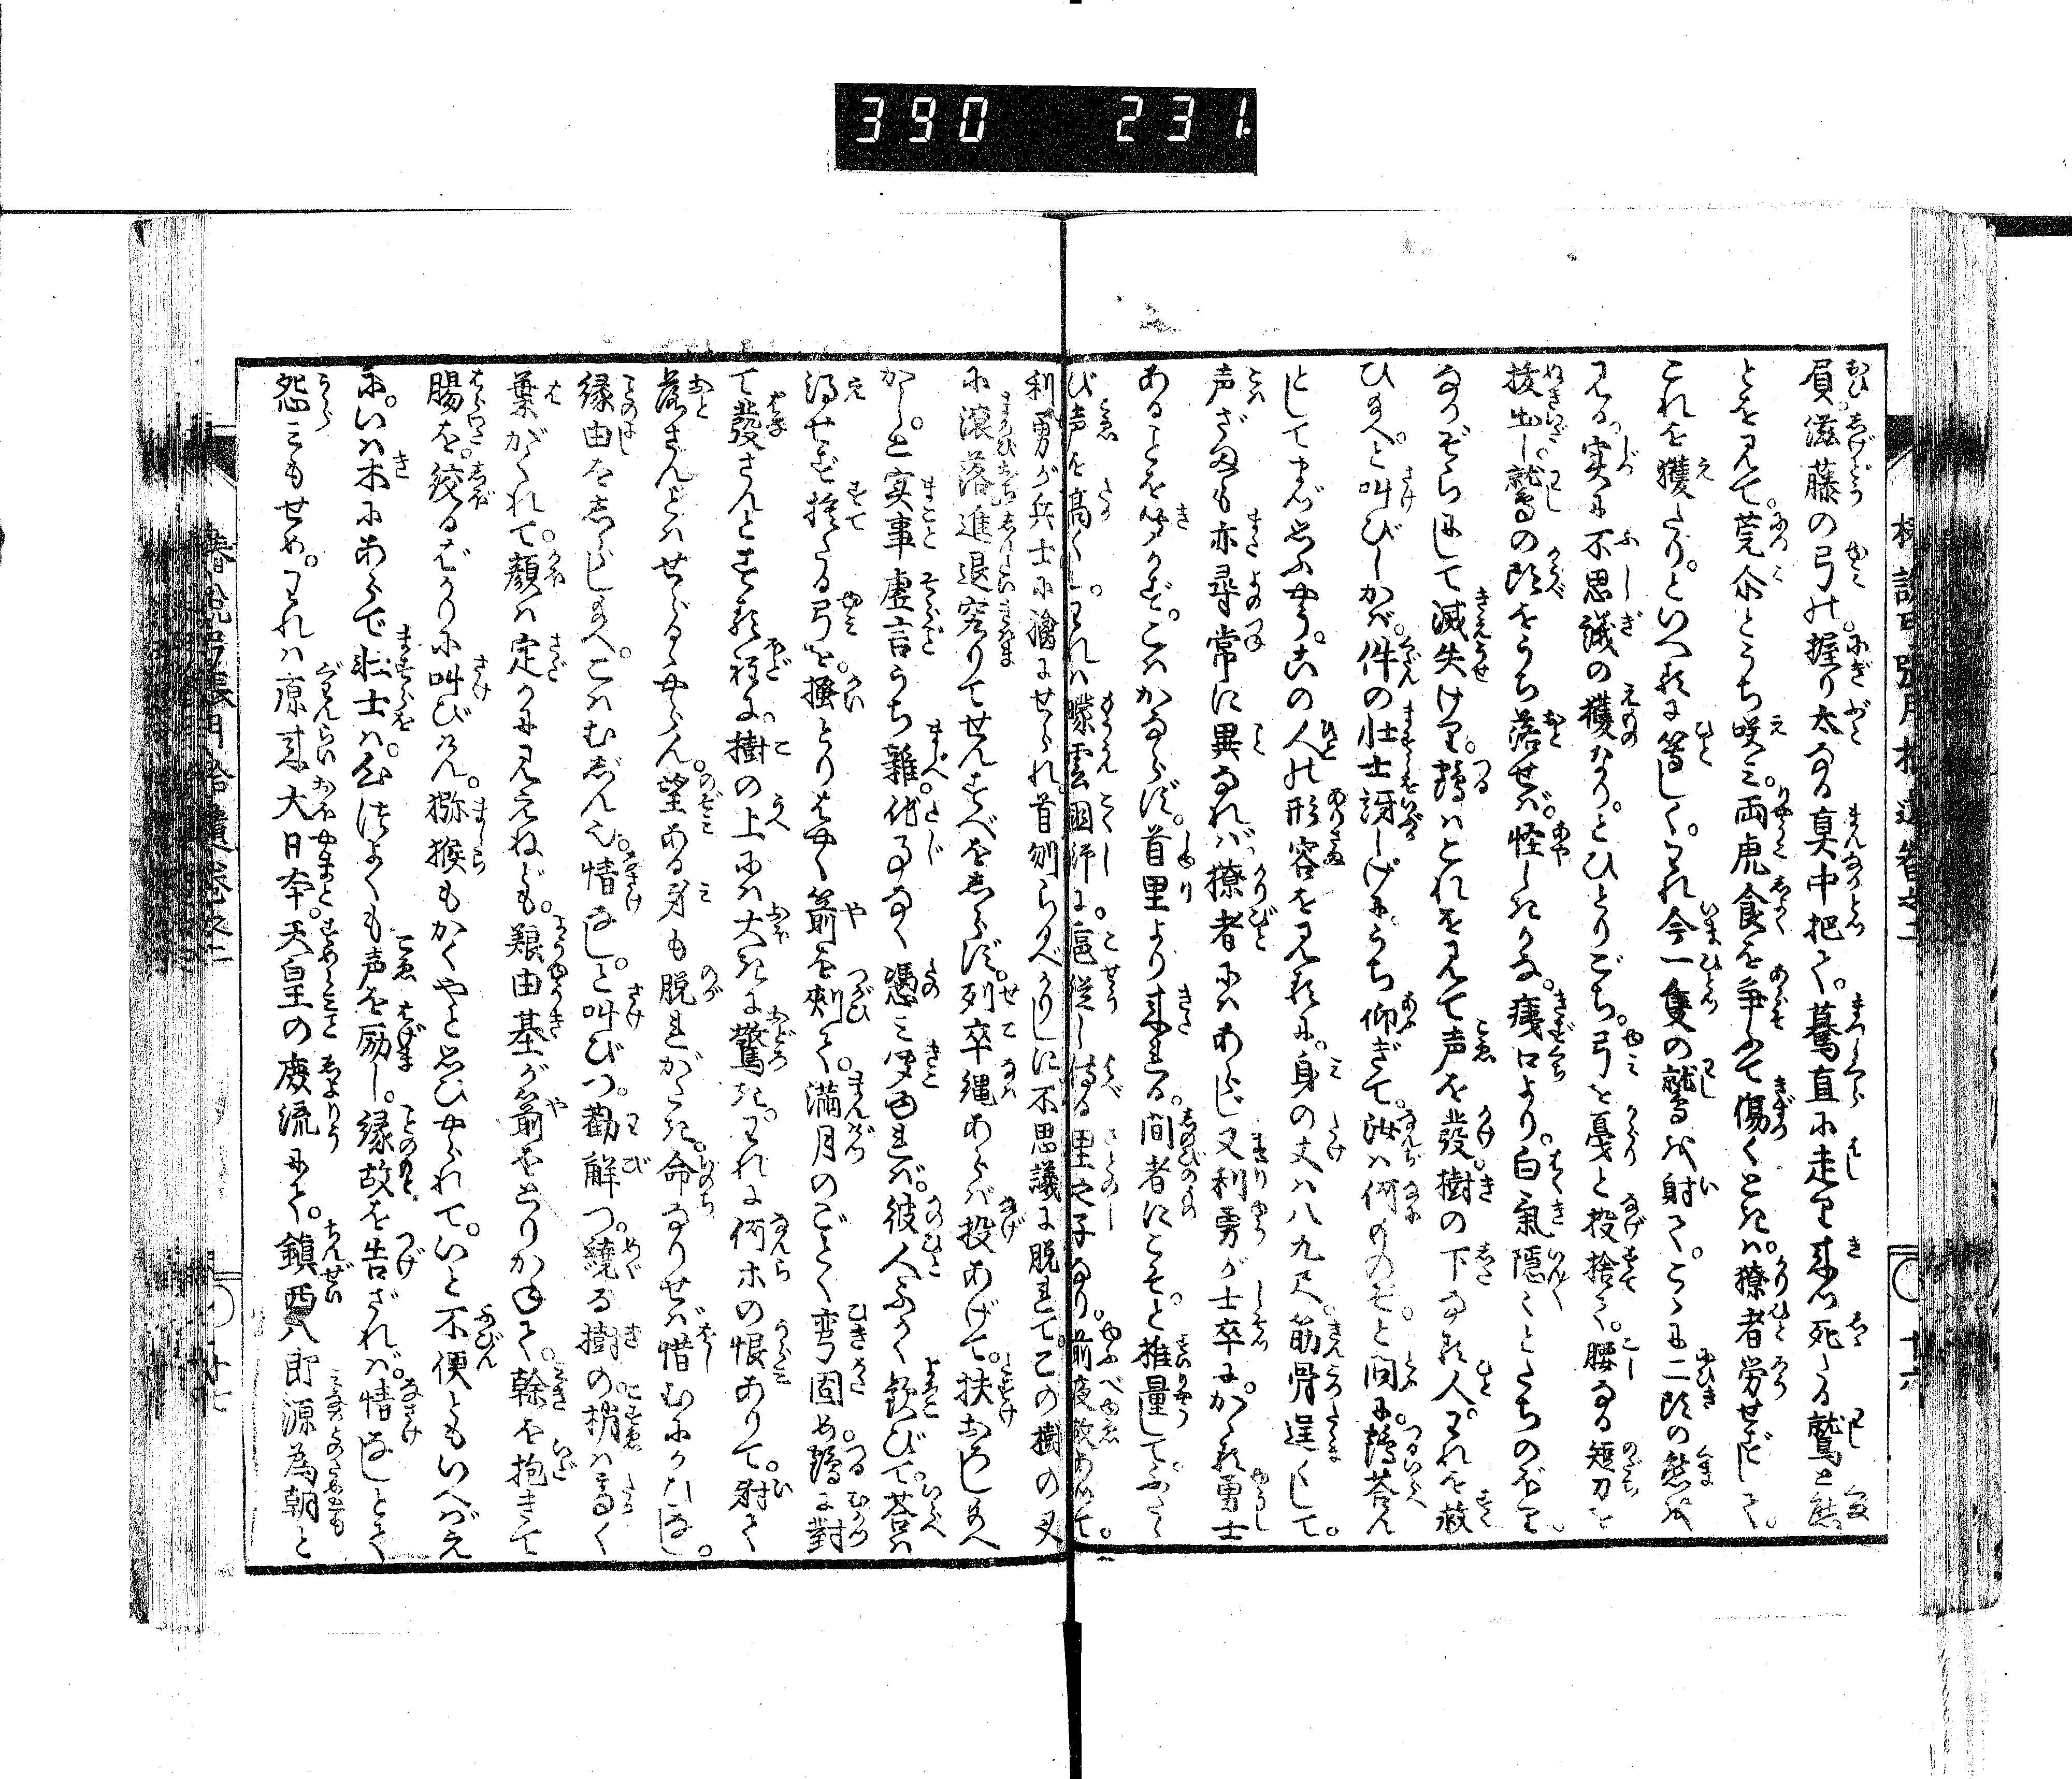 390 231
肩。滋藤の弓の。握り太なる真中把て。驀直に走り来つ死たる鷲と熊
とを見て。莞尓とうち咲み。両虎食を争ふて傷くときは。獠者労せずして。
これを獲たり。といへるに等しく。われ今一隻の鷲を射て。こゝに二頭の熊を
見る。実に不思議の獲なり。とひとりごち。弓を戞と投捨て。腰なる短刀を
抜出し。鷲の頭をうち落せば。怪しきかな。痍口より。白気隠々とたちのぼり。
なかぞらにして滅失けり。鶴はこれを見て声を発。樹の下なる人。われを救
ひ給へ。と叫びしかば。件の壮士訝しげに。うち仰ぎて。汝は何ものぞ。と問に。鶴答ん
としてまづ思ふやう。この人の形容を見るに。身の丈は八九尺。筋骨逞しくして。
声ざまも亦尋常に異なれば。獠者にはあらじ。又利勇が士卒に。かゝる勇士
あることを聞かず。こはかならず。首里より来れる。間者にこそ。と推量して。ふたゝ
び声を高くし。われは曚雲国師に。扈従し侍る里之子なり。前夜故あつて。
利勇が兵士に擒にせられ。首刎らるべかりしに不思議に脱れて。この樹の叉
に滾落進退究りてせんすべをしらず。列卒縄あらば投あげて。扶おろし給へ
かし。と実事虚言うち雑。他事なく憑み聞ゆれば。彼人ふかく歎びて。答は
得せず捨たる弓を。掻とりはやく箭を刺て。満月のごとく弯固め。鶴に対
て発さんとする程に。樹の上には大きに驚き。われに何等の恨ありて。射て
落さんとはせらるゝやらん。望ある身も脱れがたき。命なりせば惜むにかひなし。
縁由をしらし給へ。こはむざんや。情なし。と叫びつ。勸解つ。繞る樹の梢は高く
葉がくれて。顔は定かに見えねども。艱由基が箭をとりかねて。幹を抱きて
腸を。絞るばかりに叫びけん。獼猴もかくやと思ひやられて。いと不便ともいへばえ
に。いは木にあらで壮士は。心つよくも声を励し。縁故を告ざれば。情なしとて
怨みもせめ。われは原来大日本。天皇の庶流にて。鎮西八郎源為朝と